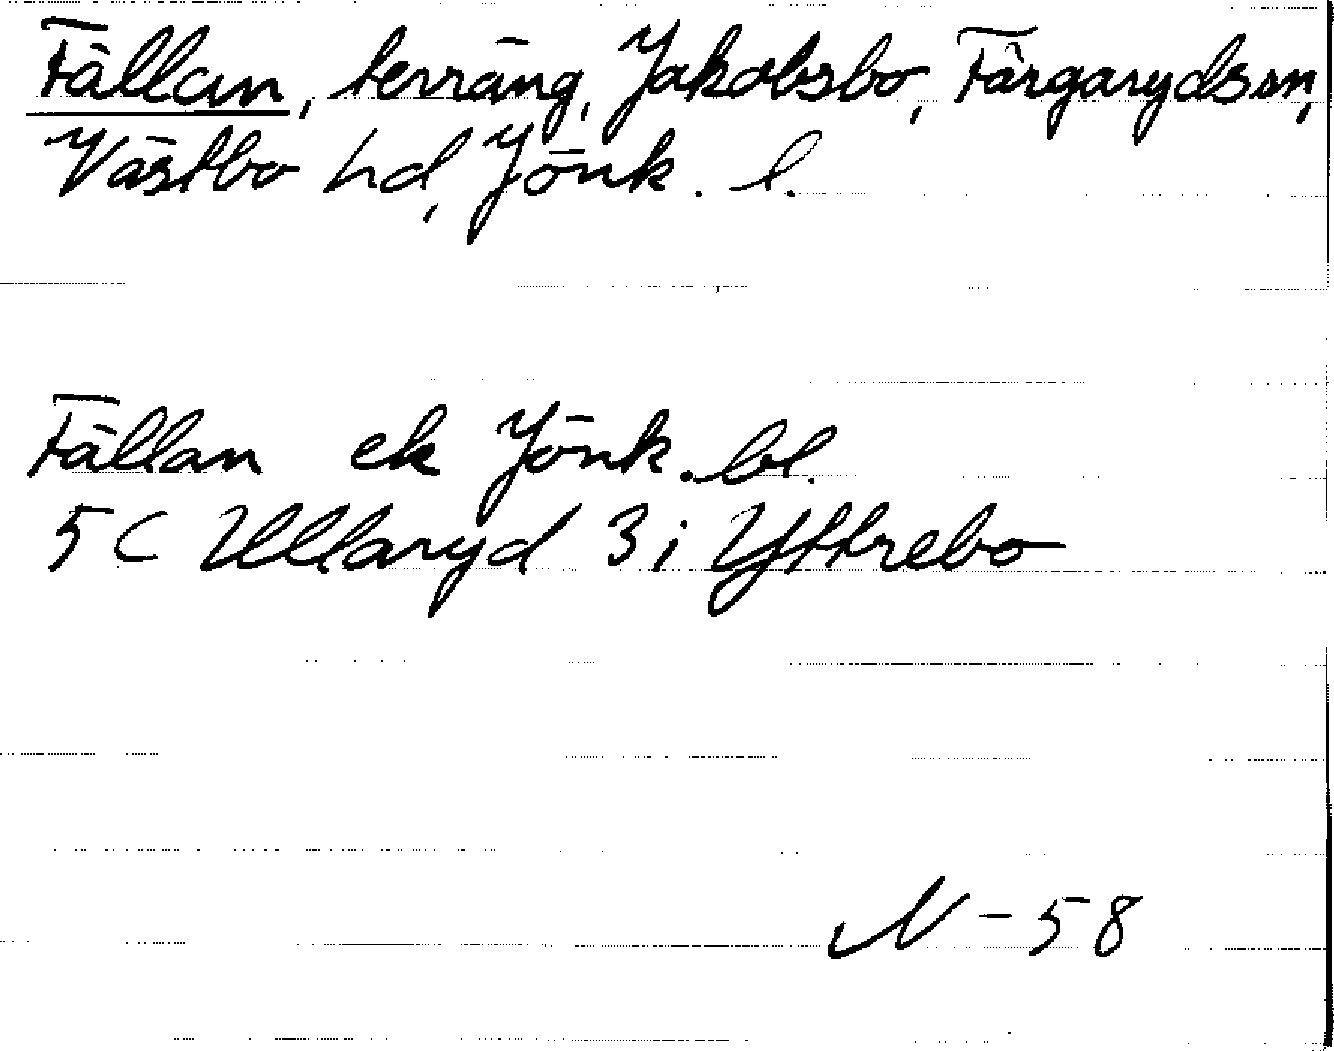 Fällan, terräng, Jakobsbo, Färgaryds sn,
Västbo hd, Jönk. l.
Fällan ek Jönk. bl.
5 C Ullaryd 3 i Yttrebo
N - 58